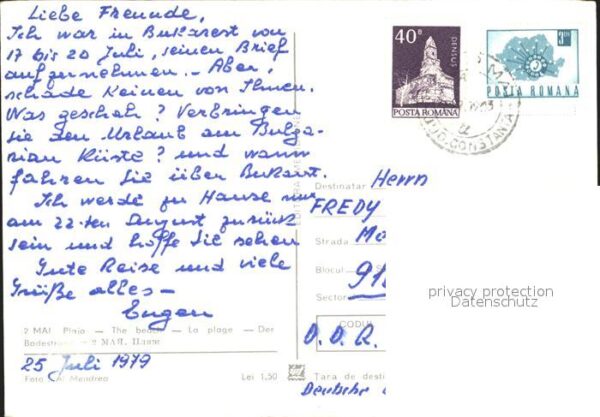 Liebe Freunde,
Ich war in Bukarest von
17 bis 20 Juli, seinen Brief
aufzunehmen. - Aber,
schade Keinen von Ihnen.
Was geschah? Verbringen
sie den Urlaub am Bulga-
rian Küste? und wann
fahren Sie über Bukarest.
Ich werde zu Hause nur
am 22-ten August zurück
sein und hoffe Sie sehen
Gute Reise und viele
Grüße alles -
Eugen
2 MAI Plaja — The beach — La plage — Der
Badestrand — 2 МАЯ. Пляж
25 Juli 1979
Foto: Mendrea
Lei 1,50
40 B
DENSUS
POSTA ROMANA
3 LEI
POSTA ROMANA
CONSTANTA
Destinatar Herrn
FREDY
Strada
Blocul
Sector
CODUL
D. D. R.
Tara de desti
Deutsche
privacy protection
Datenschutz